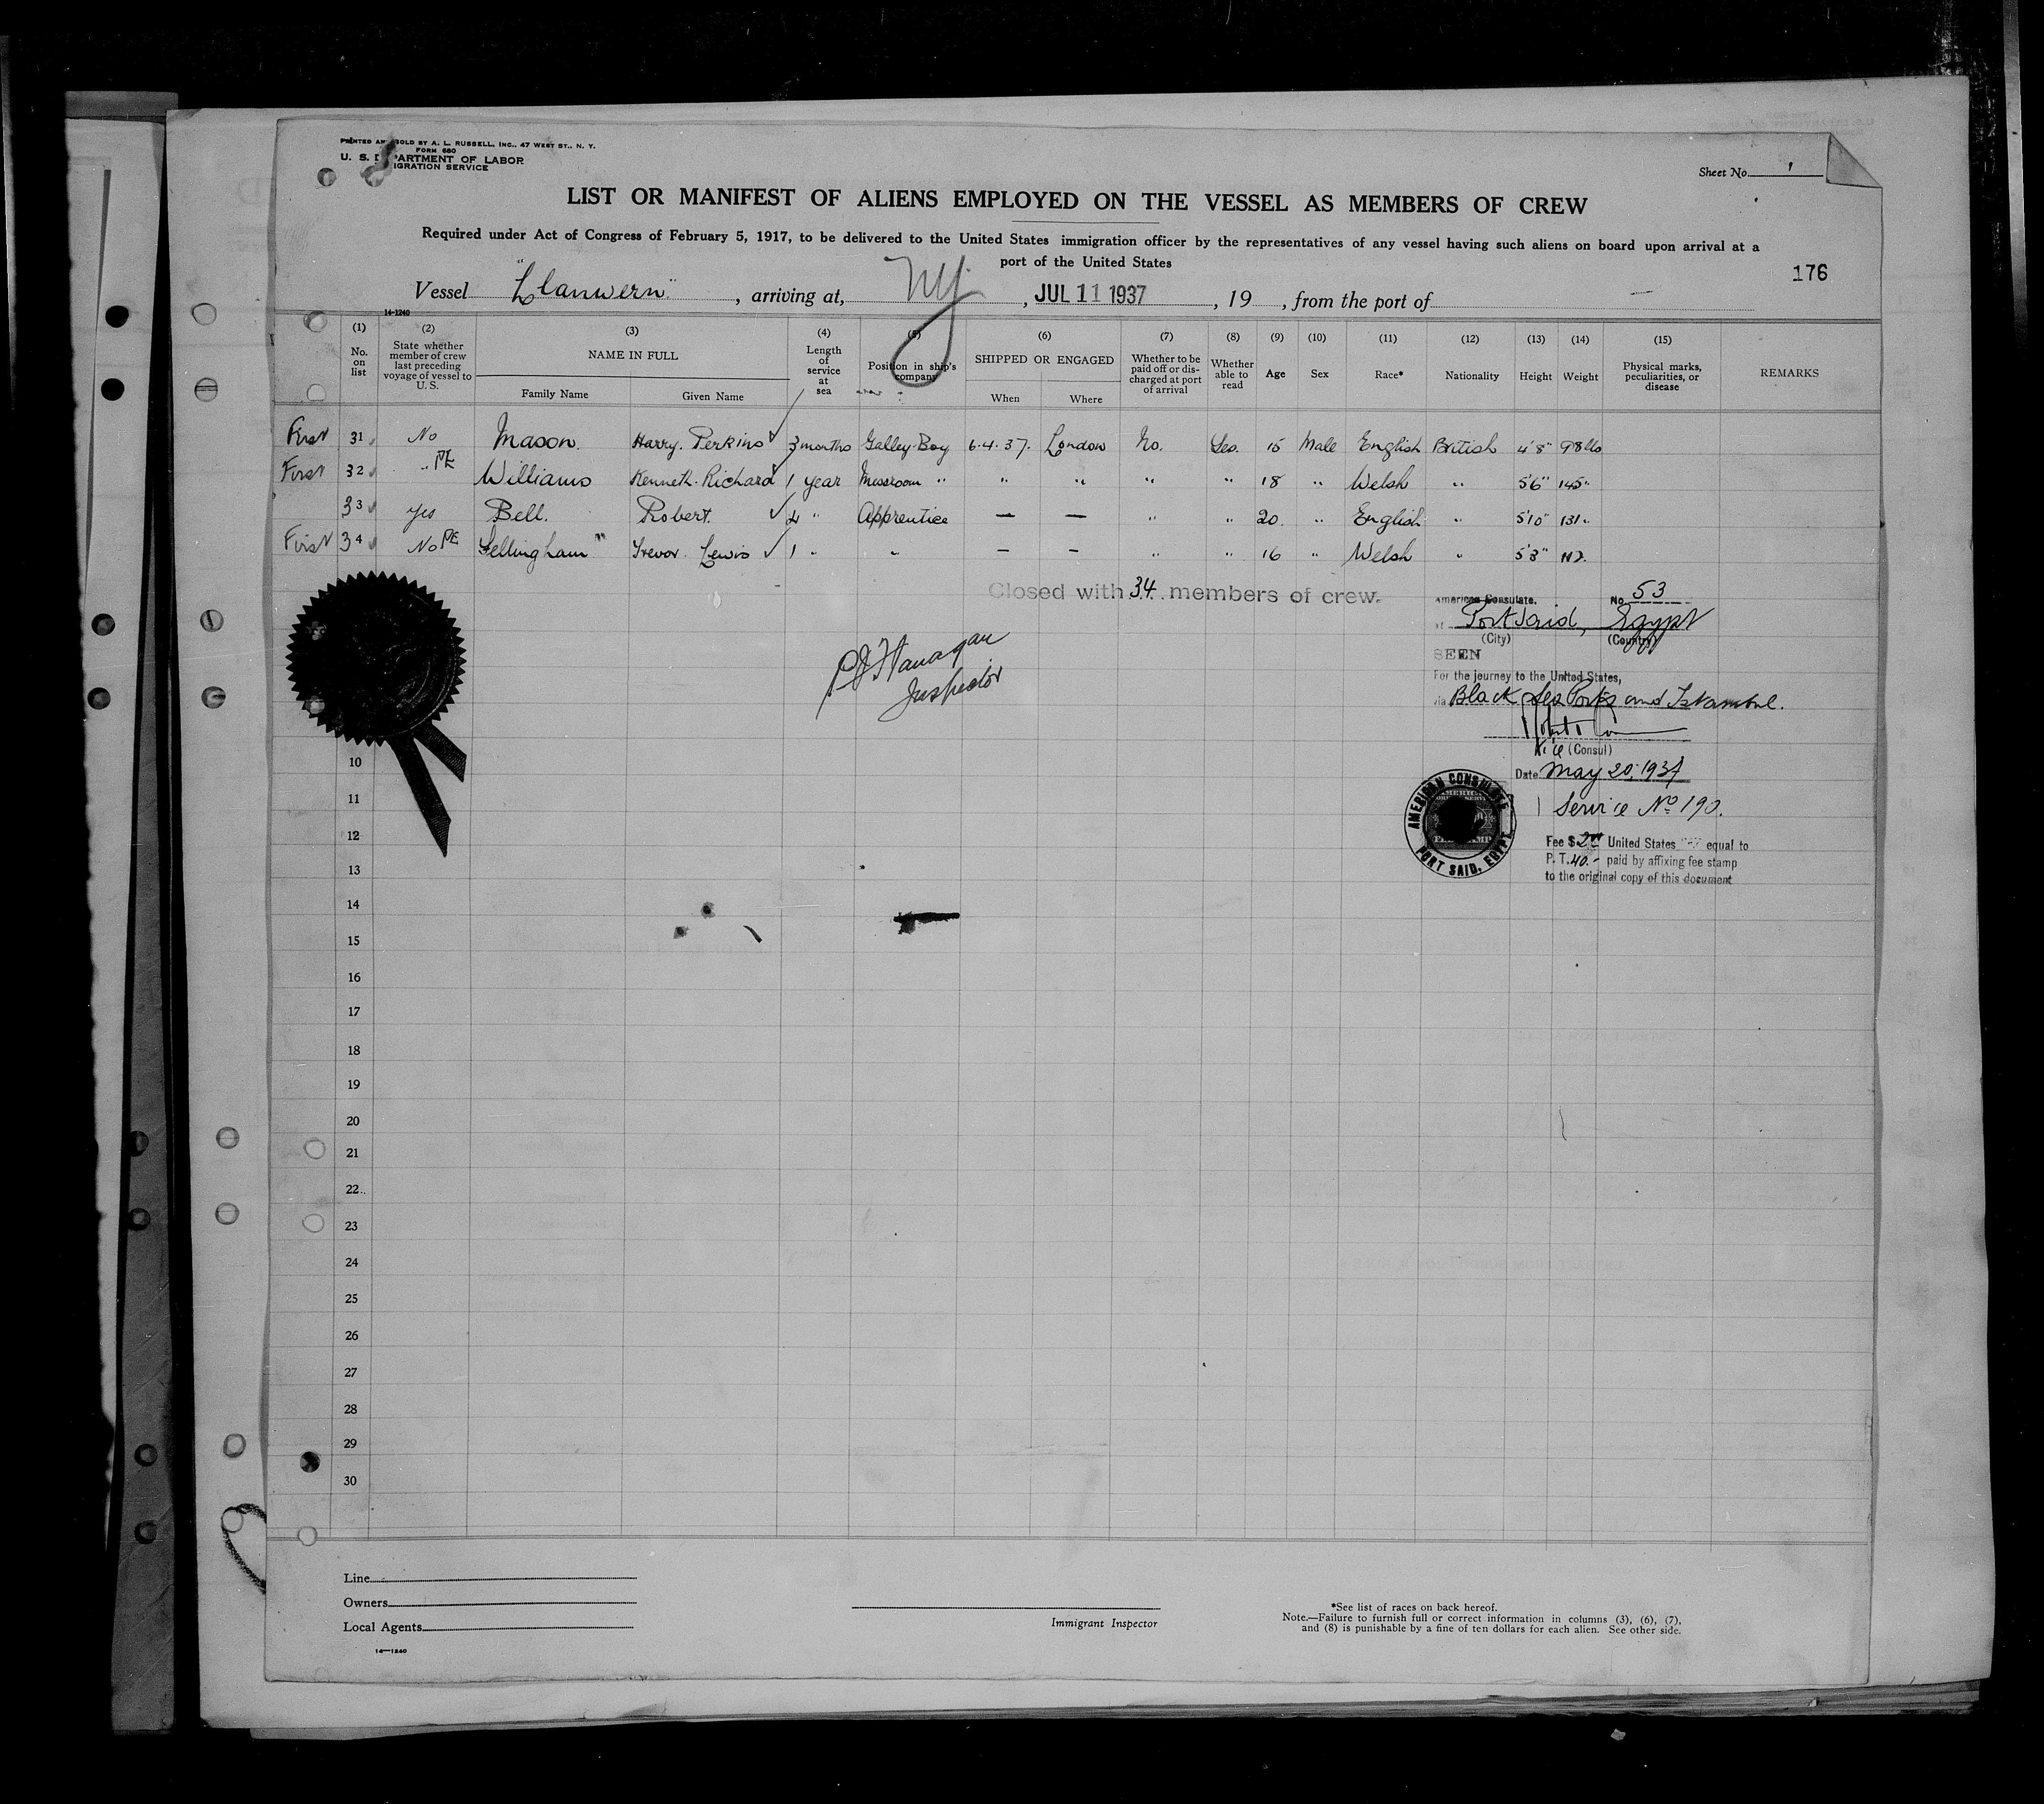 PRINTED AND SOLD BY A. L. RUSSELL, INC., 47 WEST ST., N. Y.
FORM 680
U. S. DEPARTMENT OF LABOR
IGRATION SERVICE
Sheet No. 1
LIST OR MANIFEST OF ALIENS EMPLOYED ON THE VESSEL AS MEMBERS OF CREW
Required under Act of Congress of February 5, 1917, to be delivered to the United States immigration officer by the representatives of any vessel having such aliens on board upon arrival at a
port of the United States
176
Vessel "Llanwern", arriving at, NY, JUL 11 1937, 19 , from the port of
14-1240
(1) No. on list
(2) State whether member of crew last preceding voyage of vessel to U. S.
(3) NAME IN FULL
Family Name
Given Name
(4) Length of service at sea
(5) Position in ship's company
(6) SHIPPED OR ENGAGED
When
Where
(7) Whether to be paid off or discharged at port of arrival
(8) Whether able to read
(9) Age
(10) Sex
(11) Race*
(12) Nationality
(13) Height
(14) Weight
(15) Physical marks, peculiarities, or disease
REMARKS
First 31 No Mason. Harry. Perkins 3 months Galley Boy 6.4.37. London No. Yes. 15 Male English British 4'8" 98 lbs
First 32 " PE Williams Kenneth Richard 1 year Messroom " " " " " 18 " Welsh " 5'6" 145 "
33 Yes Bell. Robert. 4 " Apprentice — — " " 20. " English " 5'10" 131 "
First 34 No PE Fellingham Trevor Lewis 1 " " — — " " 16 " Welsh " 5'3"
Closed with 34 members of crew.
American Consulate. No. 53
at Port Said, Egypt
(City) (Country)
SEEN
For the journey to the United States,
via Black Sea Ports and Istanbul.
Vice (Consul)
Date May 20, 1937
Service No 190.
Fee $2 United States equal to
P. T. 40.- paid by affixing fee stamp
to the original copy of this document
AMERICAN CONSULATE
PORT SAID, EGYPT
P J Flanagan
Inspector
10
11
12
13
14
15
16
17
18
19
20
21
22
23
24
25
26
27
28
29
30
Line
Owners
Local Agents
14—1240
Immigrant Inspector
*See list of races on back hereof.
Note.—Failure to furnish full or correct information in columns (3), (6), (7),
and (8) is punishable by a fine of ten dollars for each alien. See other side.